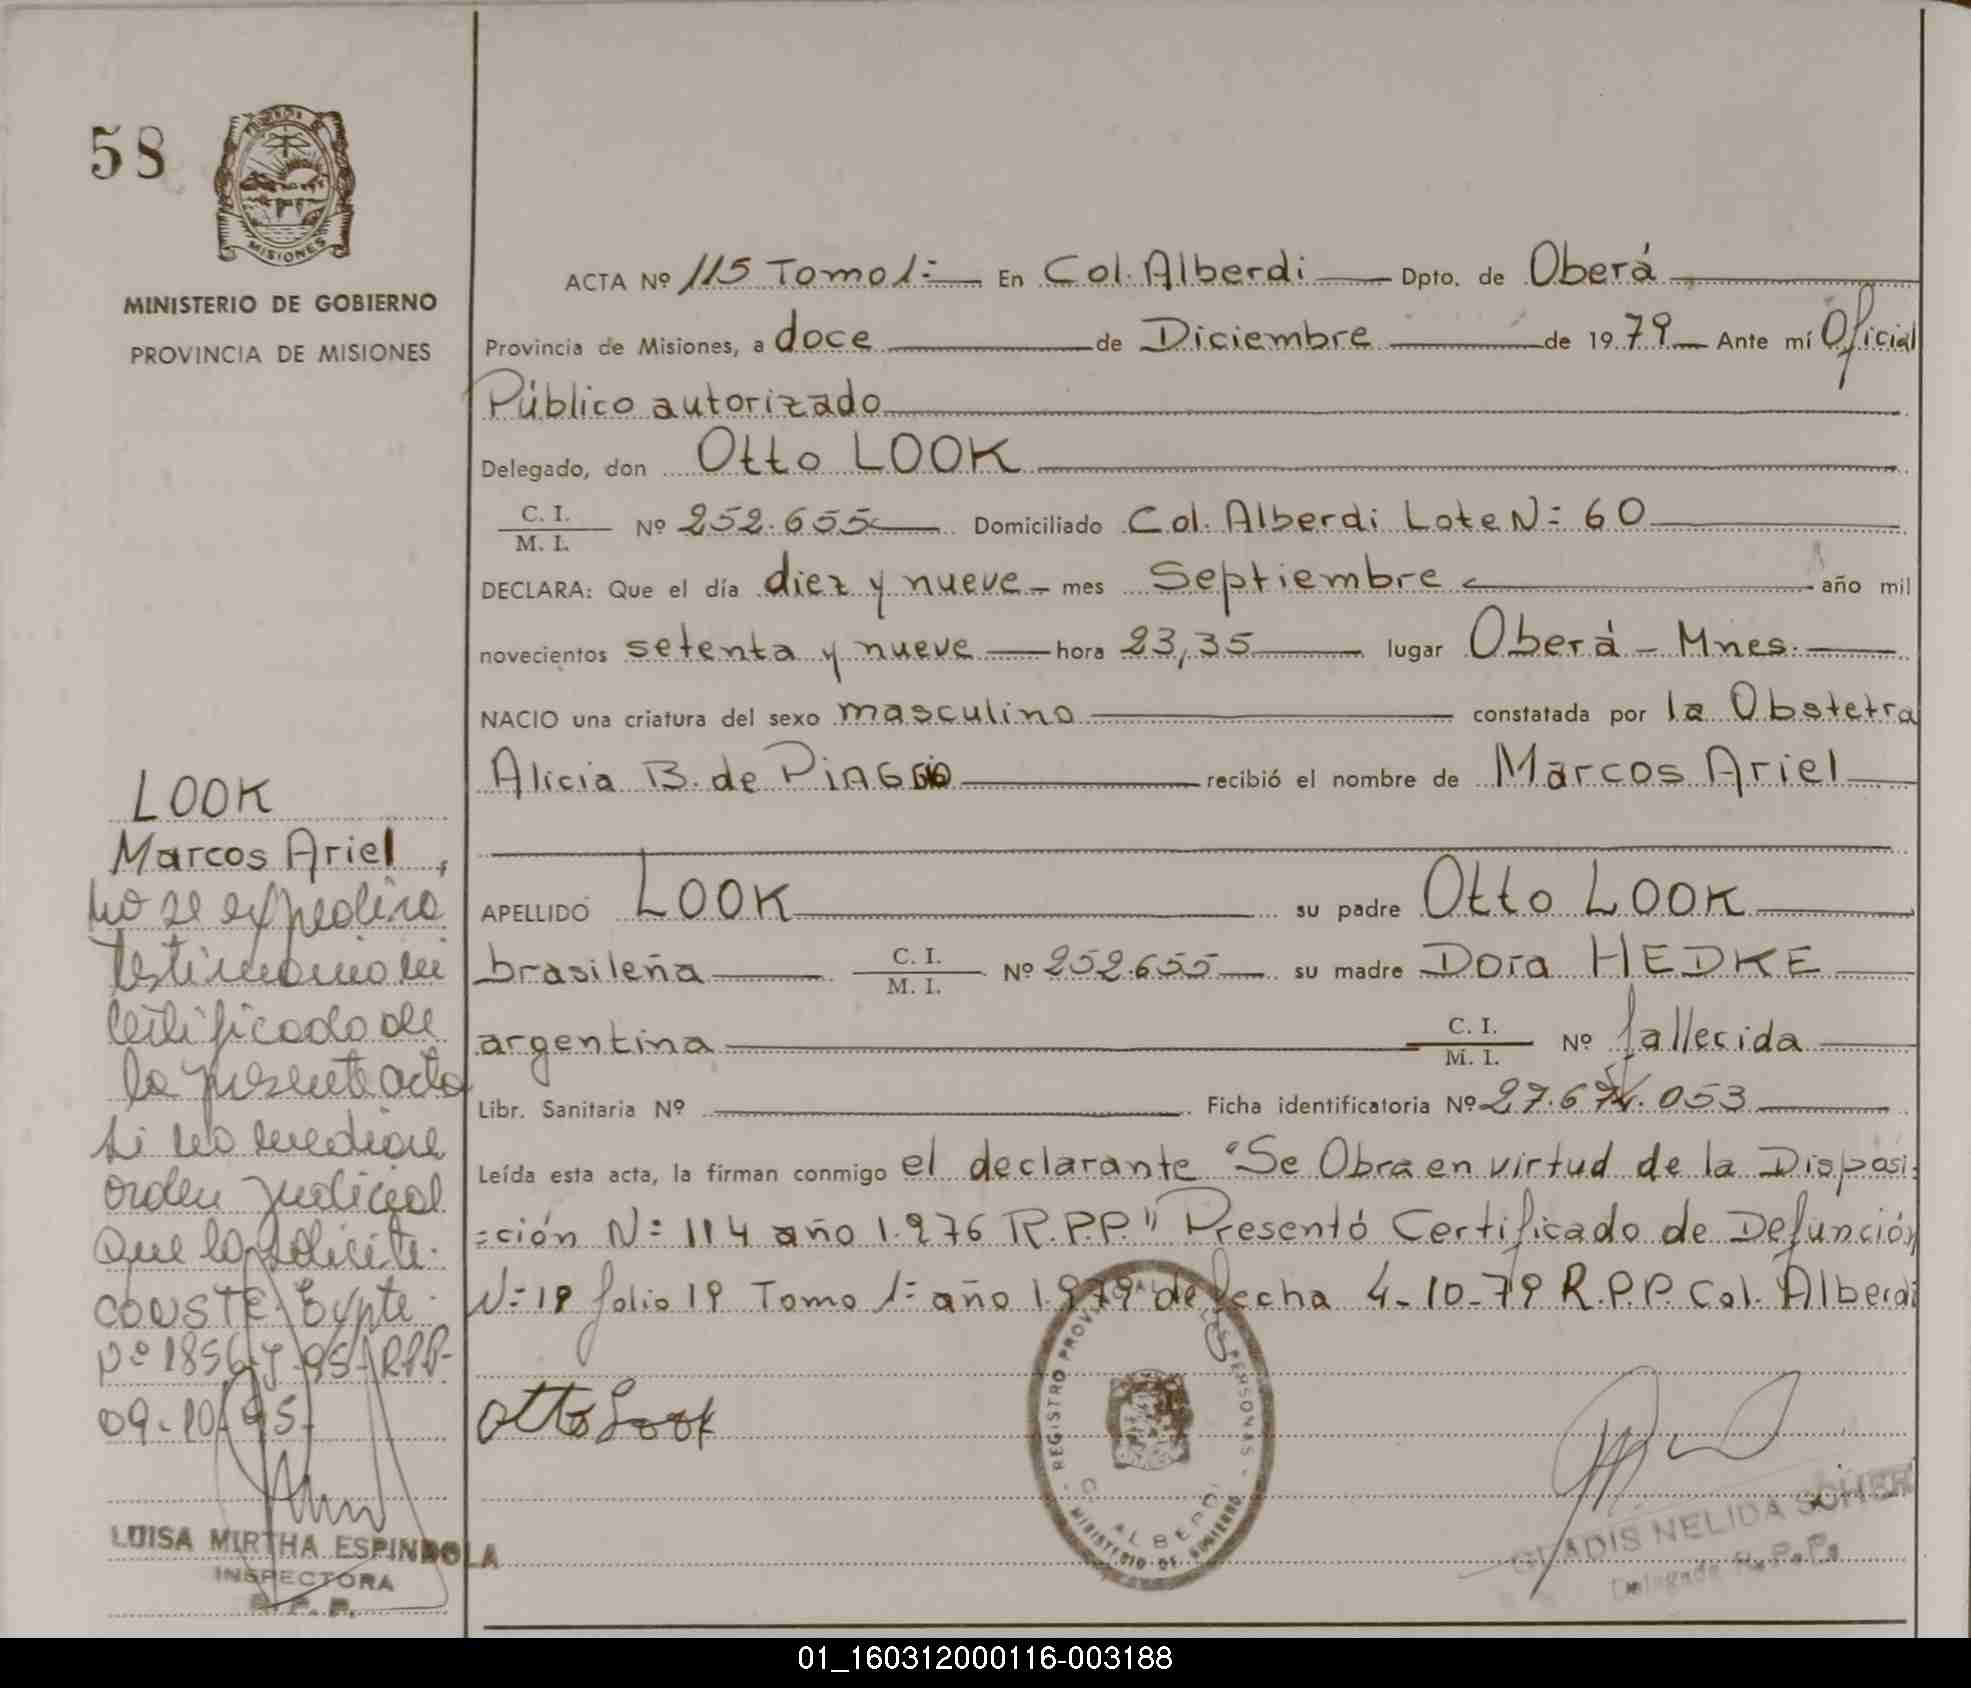 58
MISIONES
MINISTERIO DE GOBIERNO
PROVINCIA DE MISIONES
ACTA Nº 115 Tomo 1º En Col. Alberdi Dpto. de Oberá
Provincia de Misiones, a doce de Diciembre de 1979 Ante mí Oficial
Público autorizado
Delegado, don Otto LOOK
C. I.
M. I. Nº 252.655 Domiciliado Col. Alberdi Lote Nº 60
DECLARA: Que el día diez y nueve mes Septiembre año mil
novecientos setenta y nueve hora 23,35 lugar Oberá - Mnes.
NACIO una criatura del sexo masculino constatada por la Obstetra
Alicia B. de PIAGGIO recibió el nombre de Marcos Ariel
APELLIDO LOOK su padre Otto LOOK
brasileña C. I.
M. I. Nº 252.655 su madre Dora HEDKE
argentina C. I.
M. I. Nº fallecida
Libr. Sanitaria Nº Ficha identificatoria Nº 27.674.053
Leída esta acta, la firman conmigo el declarante "Se Obra en virtud de la Disposi-
=ción Nº 114 año 1.976 R.P.P." Presentó Certificado de Defunción
Nº 19 folio 19 Tomo 1º año 1.979 de fecha 4-10-79 R.P.P. Col. Alberdi
Otto Look
REGISTRO PROVINCIAL DE LAS PERSONAS
C. ALBERDI
MINISTERIO DE GOBIERNO
GLADIS NELIDA SCHER
Delegada R.P.P.
LOOK
Marcos Ariel,
No se expedira
testimonio ni
certificado de
la presente acta
si no mediare
orden judicial
que lo solicite.
CONSTE. Expte.
Nº 1856-J-95-RPP-
09-10-95-
LUISA MIRTHA ESPINDOLA
INSPECTORA
R. P. P.
01_160312000116-003188